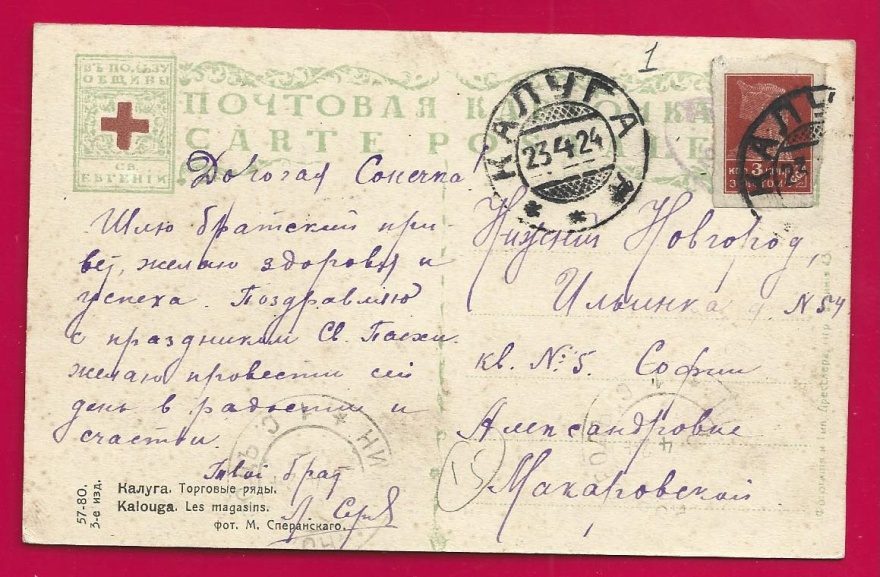 ВЪ ПОЛЬЗУ
ОБЩИНЫ
СВ.
ЕВГЕНІИ
ПОЧТОВАЯ
CARTE
КАЛУГА
23 4 24
1
Дорогая Сонечка
Шлю братский при-
вет, желаю здоровья и
успеха. Поздравляю
с праздником Св. Пасхи.
желаю провести сей
день в радости и
счастьи.
Твой брат
Нижний Новгород,
Ильинка д. N 54
кв. № 5. Софии
Александровне
Макаровской
15
57-80.
3-е изд.
Калуга. Торговые ряды.
Kalouga. Les magasins.
фот. М. Сперанскаго.